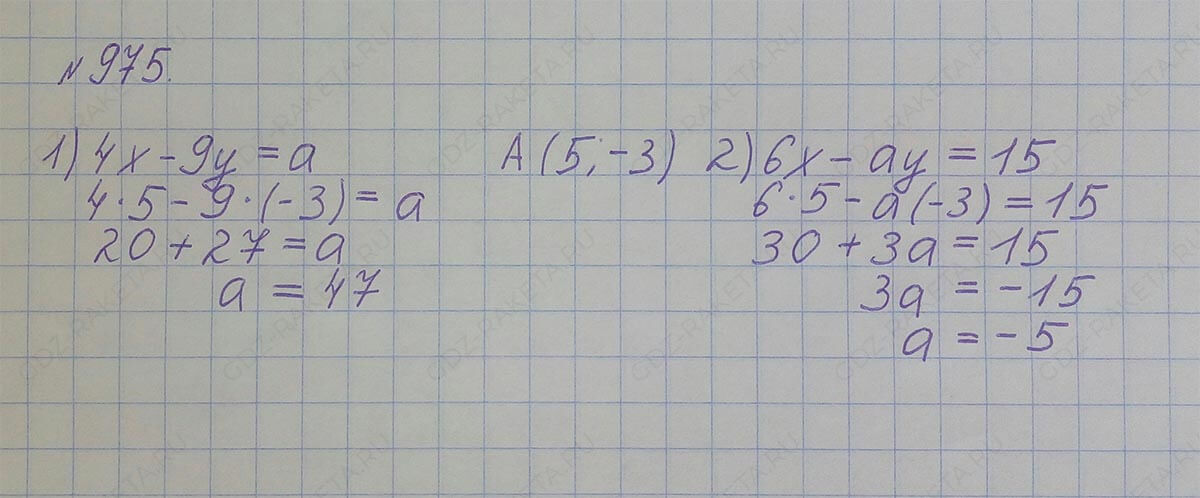 №975.
1) 4x - 9y = a
4·5 - 9·(-3) = a
20 + 27 = a
a = 47
A (5; -3)
2) 6x - ay = 15
6·5 - a(-3) = 15
30 + 3a = 15
3a = -15
a = -5
GDZ-RAKETA.RU